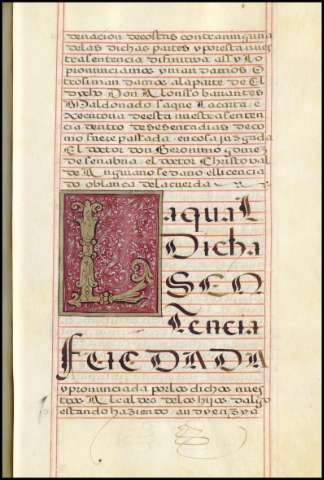 denacion decostas contra ninguna
delas dichas partes y por esta nues
tra sentencia difinitiva assy lo
pronunciamos y mandamos o
trosi mandamos ala parte del
dicho Don Alonsso bavantes
Maldonado saque la carta e
xecutoria de esta nuestra senten
cia dentro de sesenta dias de co
mo fuere passada en cosa juzgada
El doctor don Geronimo gomez
de senabria el doctor Christoval
de Anguiano sedano el licencia
do oblanca de la cuerda
Laqual
Dicha
SEN
tencia
FUE DADA
y pronunciada por los dichos nues
tros Alcaldes delos hijos dalgo
estando haziendo audyençya